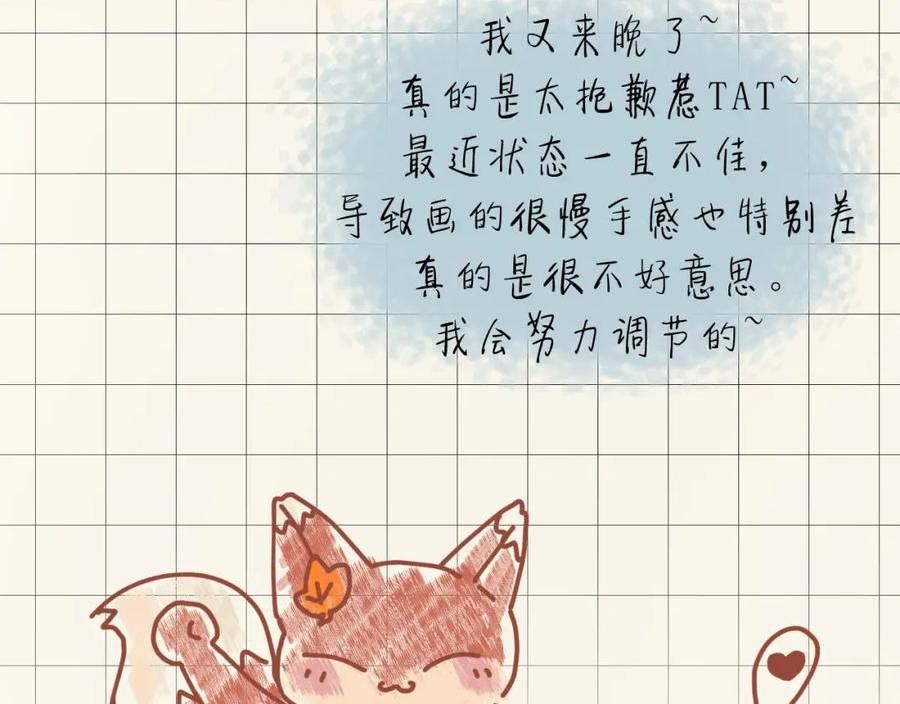 我又来晚了~
真的是太抱歉惹TAT~
最近状态一直不佳，
导致画的很慢手感也特别差
真的是很不好意思。
我会努力调节的~